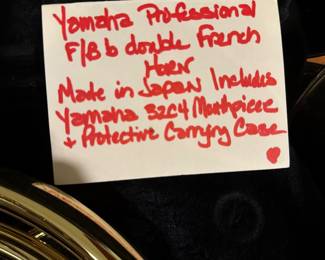 Yamaha Professional
F/B b double French
Horn
Made in Japan Includes
Yamaha 32C4 Mouthpiece
+ Protective Carrying Case